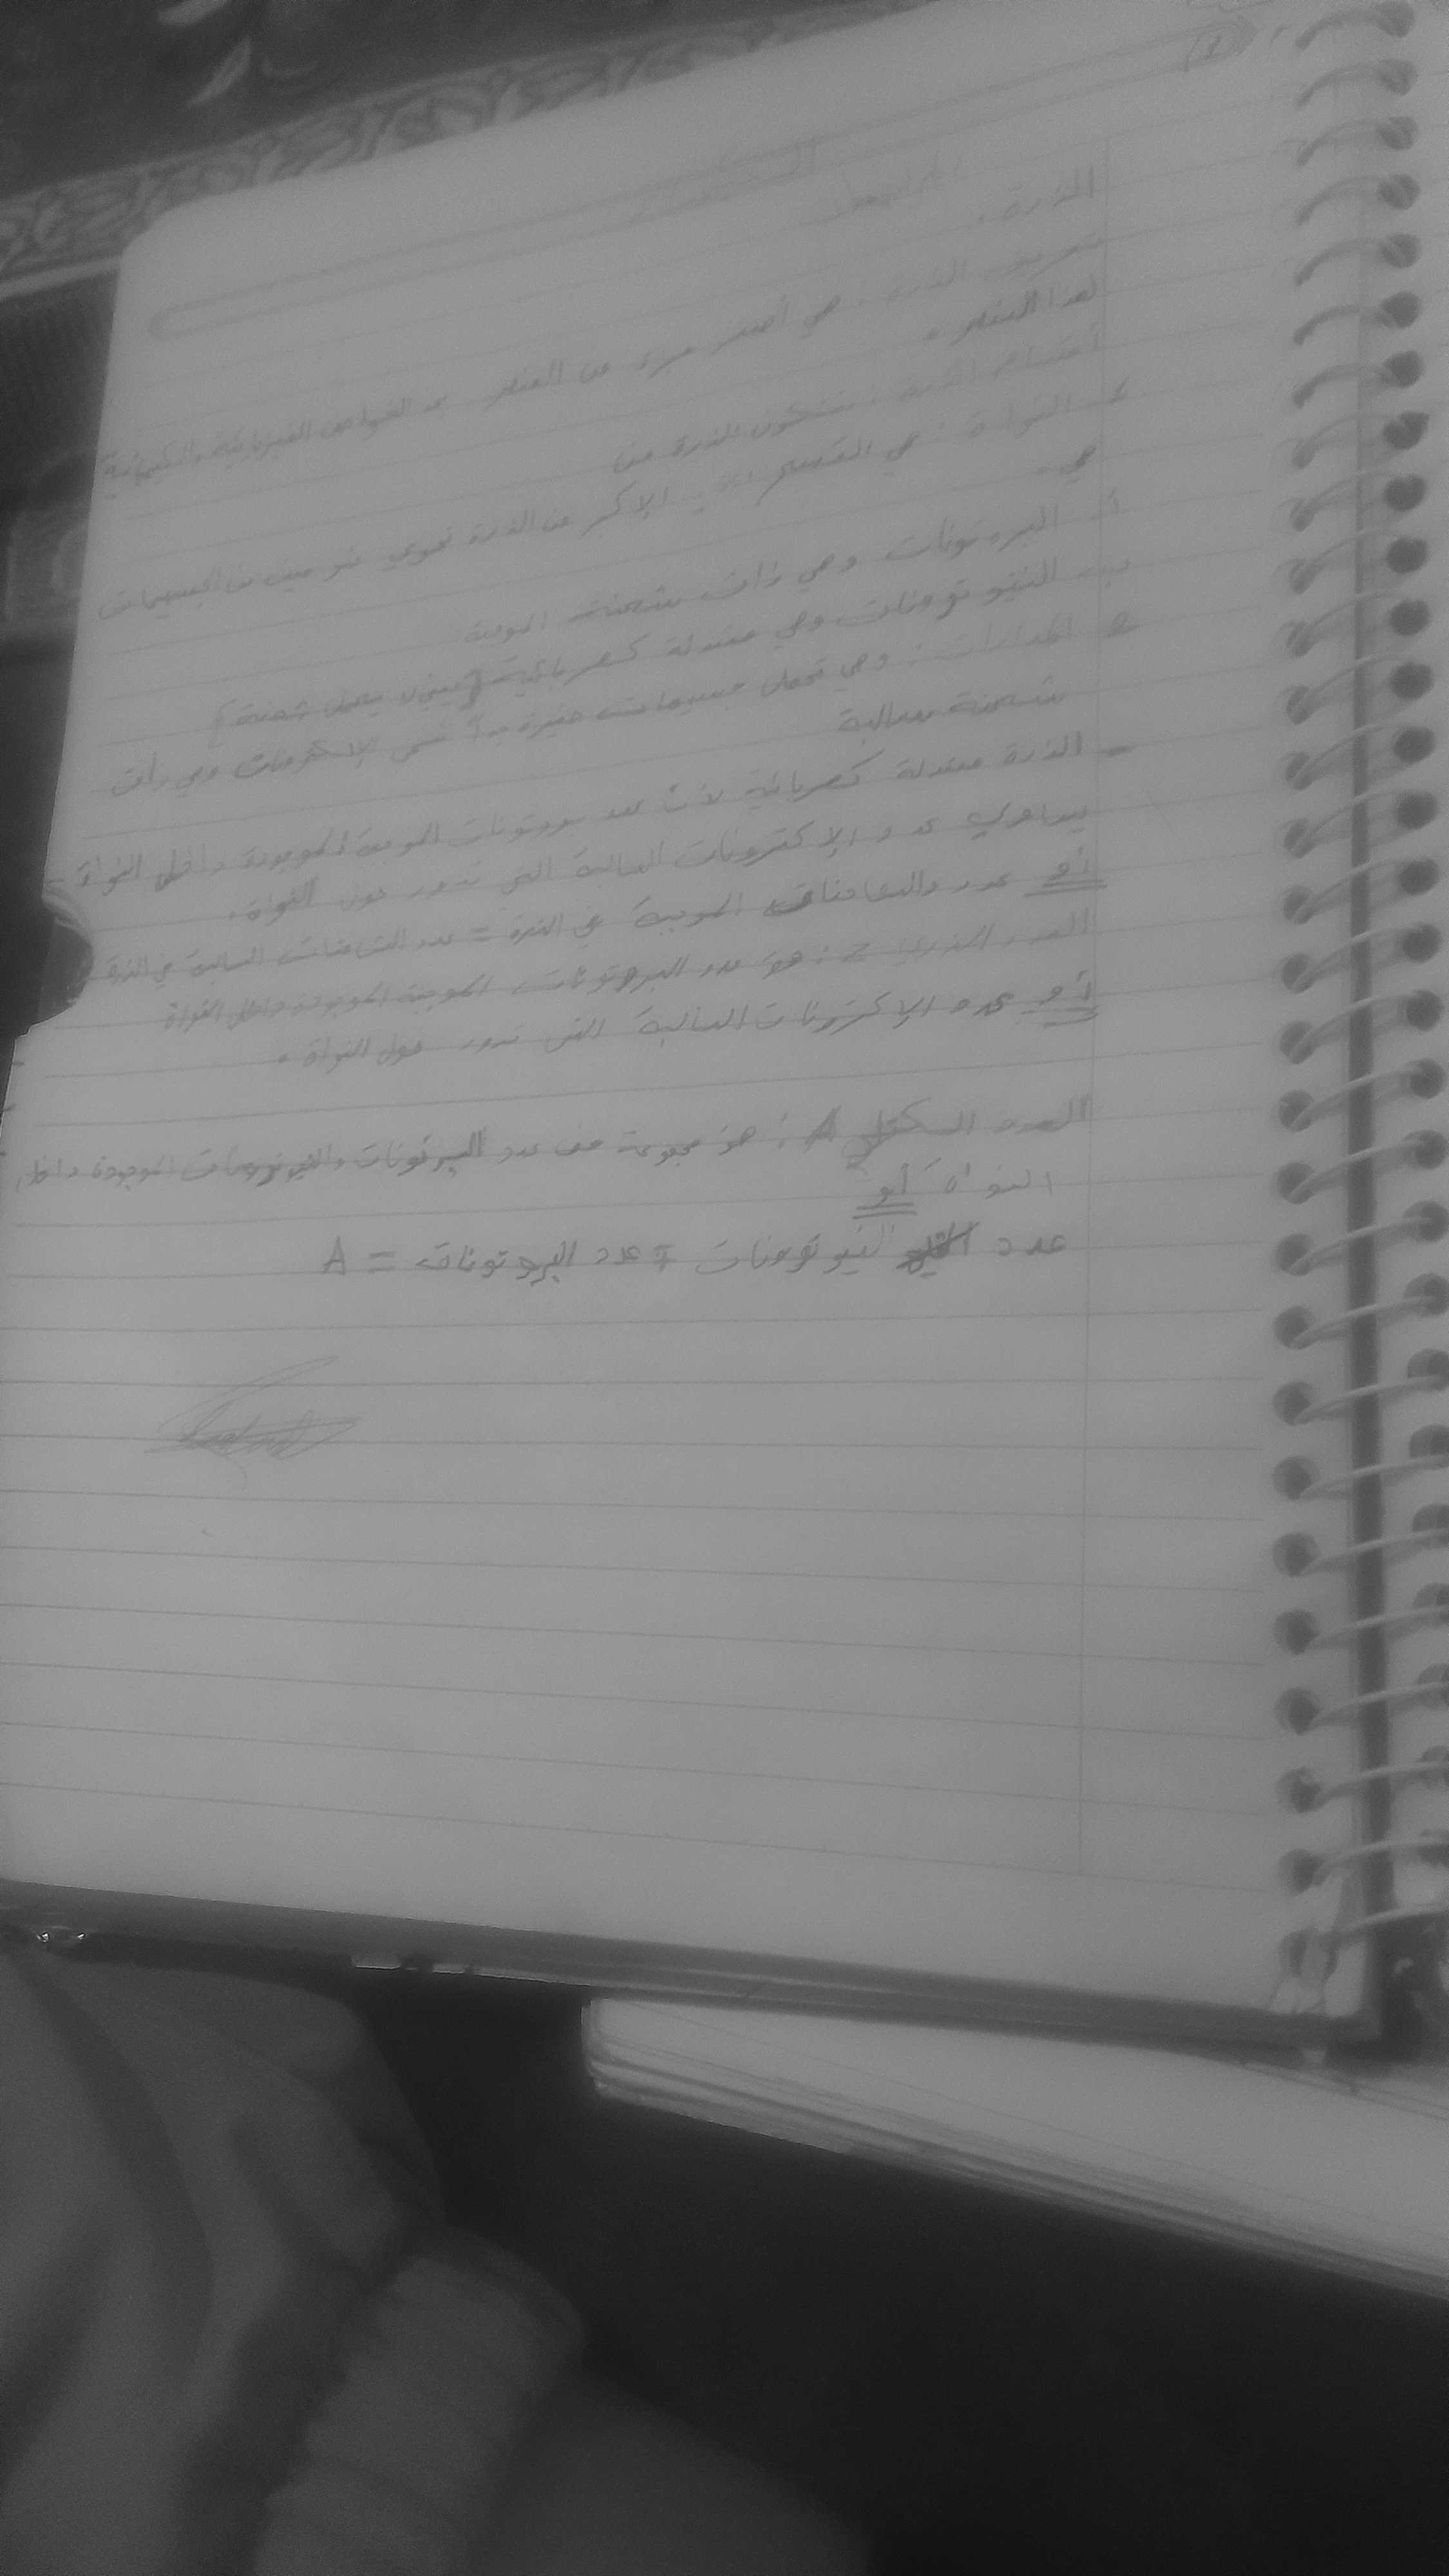 الذرة.
تعريف الذرة: هي أصغر جزء من العنصر الخواص الفيزيائية والكيميائية
لهذا العنصر.
أقسام الذرة: تتكون الذرة من
النواة: هي القسم الأكبر من الذرة تحوي نوعين من الجسيمات
هي
أ- البروتونات وهي ذات شحنة الموجبة
ب- النيوترونات وهي معتدلة كهربائية يحمل شحنة]
المدارات: وهي تحمل جسيمات صغيرة جداً تسمى الإلكترونات وهي ذات
شحنة سالبة
- الذرة معتدلة كهربائية لأن عدد بروتونات الموجبة الموجودة داخل النواة
يساوي عدد الإلكترونات السالبة التي تدور حول النواة.
أو عدد الموجبة في الذرة = عدد الشحنات السالبة في الذرة
العدد الذري Z: هو عدد البروتونات الموجبة الموجودة داخل النواة
أو عدد الإلكترونات السالبة التي تدور حول النواة.
العدد الكتلي A: هو مجموعة من عدد البروتونات والنيوترونات الموجودة داخل
النواة أو
عدد النيوترونات + عدد البروتونات = A